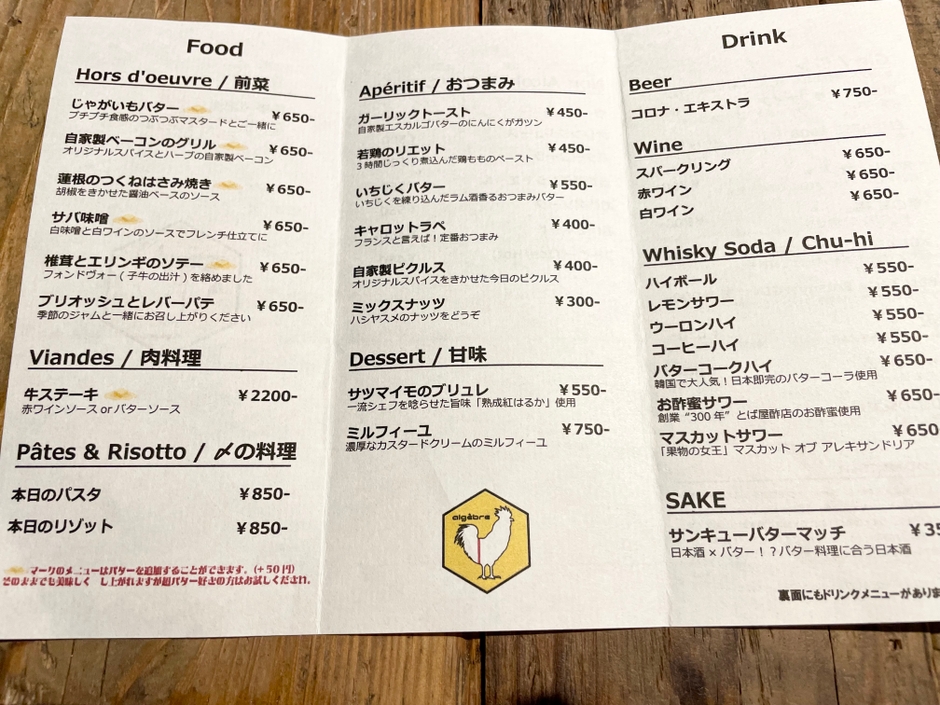 Food
Hors d'oeuvre / 前菜
じゃがいもバター ¥650-
プチプチ食感のつぶつぶマスタードとご一緒に
自家製ベーコンのグリル ¥650-
オリジナルスパイスとハーブの自家製ベーコン
蓮根のつくねはさみ焼き ¥650-
胡椒をきかせた醤油ベースのソース
サバ味噌 ¥650-
白味噌と白ワインのソースでフレンチ仕立てに
椎茸とエリンギのソテー ¥650-
フォンドヴォー(子牛の出汁)を絡めました
ブリオッシュとレバーパテ ¥650-
季節のジャムと一緒にお召し上がりください
Viandes / 肉料理
牛ステーキ ¥2200-
赤ワインソース or バターソース
Pâtes & Risotto / 〆の料理
本日のパスタ ¥850-
本日のリゾット ¥850-
マークのメニューはバターを追加することができます。(+50円)
そのままでも美味しく し上がれますが超バター好きの方はお試しください。
Apéritif / おつまみ
ガーリックトースト ¥450-
自家製エスカルゴバターのにんにくがガツン
若鶏のリエット ¥450-
3時間じっくり煮込んだ鶏もものペースト
いちじくバター ¥550-
いちじくを練り込んだラム酒香るおつまみバター
キャロットラペ ¥400-
フランスと言えば!定番おつまみ
自家製ピクルス ¥400-
オリジナルスパイスをきかせた今日のピクルス
ミックスナッツ ¥300-
ハシヤスメのナッツをどうぞ
Dessert / 甘味
サツマイモのブリュレ ¥550-
一流シェフを唸らせた旨味「熟成紅はるか」使用
ミルフィーユ ¥750-
濃厚なカスタードクリームのミルフィーユ
algèbre
Drink
Beer
コロナ・エキストラ ¥750-
Wine
スパークリング ¥650-
赤ワイン ¥650-
白ワイン ¥650-
Whisky Soda / Chu-hi
ハイボール ¥550-
レモンサワー ¥550-
ウーロンハイ ¥550-
コーヒーハイ ¥550-
バターコークハイ ¥650-
韓国で大人気!日本即完のバターコーラ使用
お酢蜜サワー ¥650-
創業"300年"とば屋酢店のお酢蜜使用
マスカットサワー ¥650
「果物の女王」マスカット オブ アレキサンドリア
SAKE
サンキューバターマッチ ¥35
日本酒×バター!?バター料理に合う日本酒
裏面にもドリンクメニューがありま